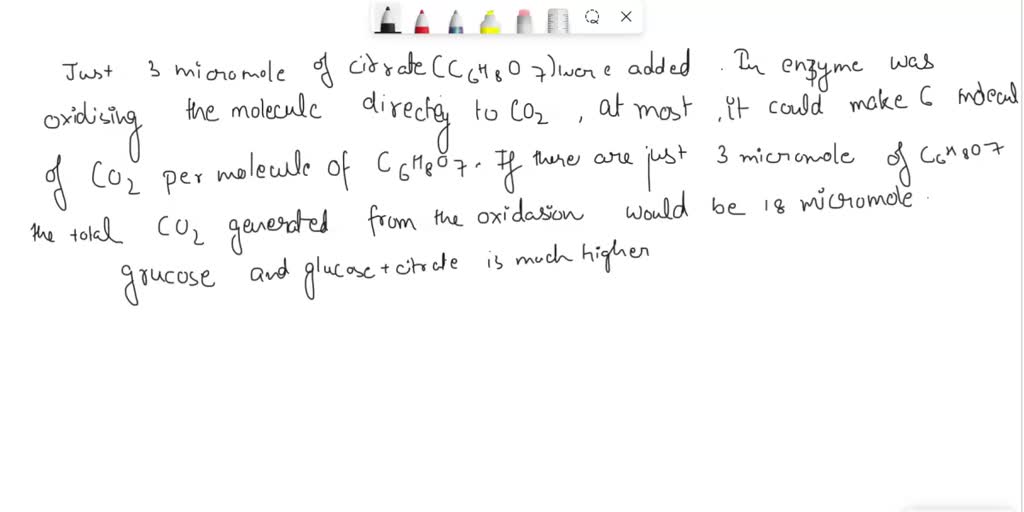 Just 3 micromole of citrate (C6H8O7) were added. In enzyme was
oxidising the molecule directly to CO2, at most, it could make 6 molecul
of CO2 per molecule of C6H8O7. If there are just 3 micromole of C6H8O7
the total CO2 generated from the oxidasion would be 18 micromole.
grucose and glucose + citrate is much higher